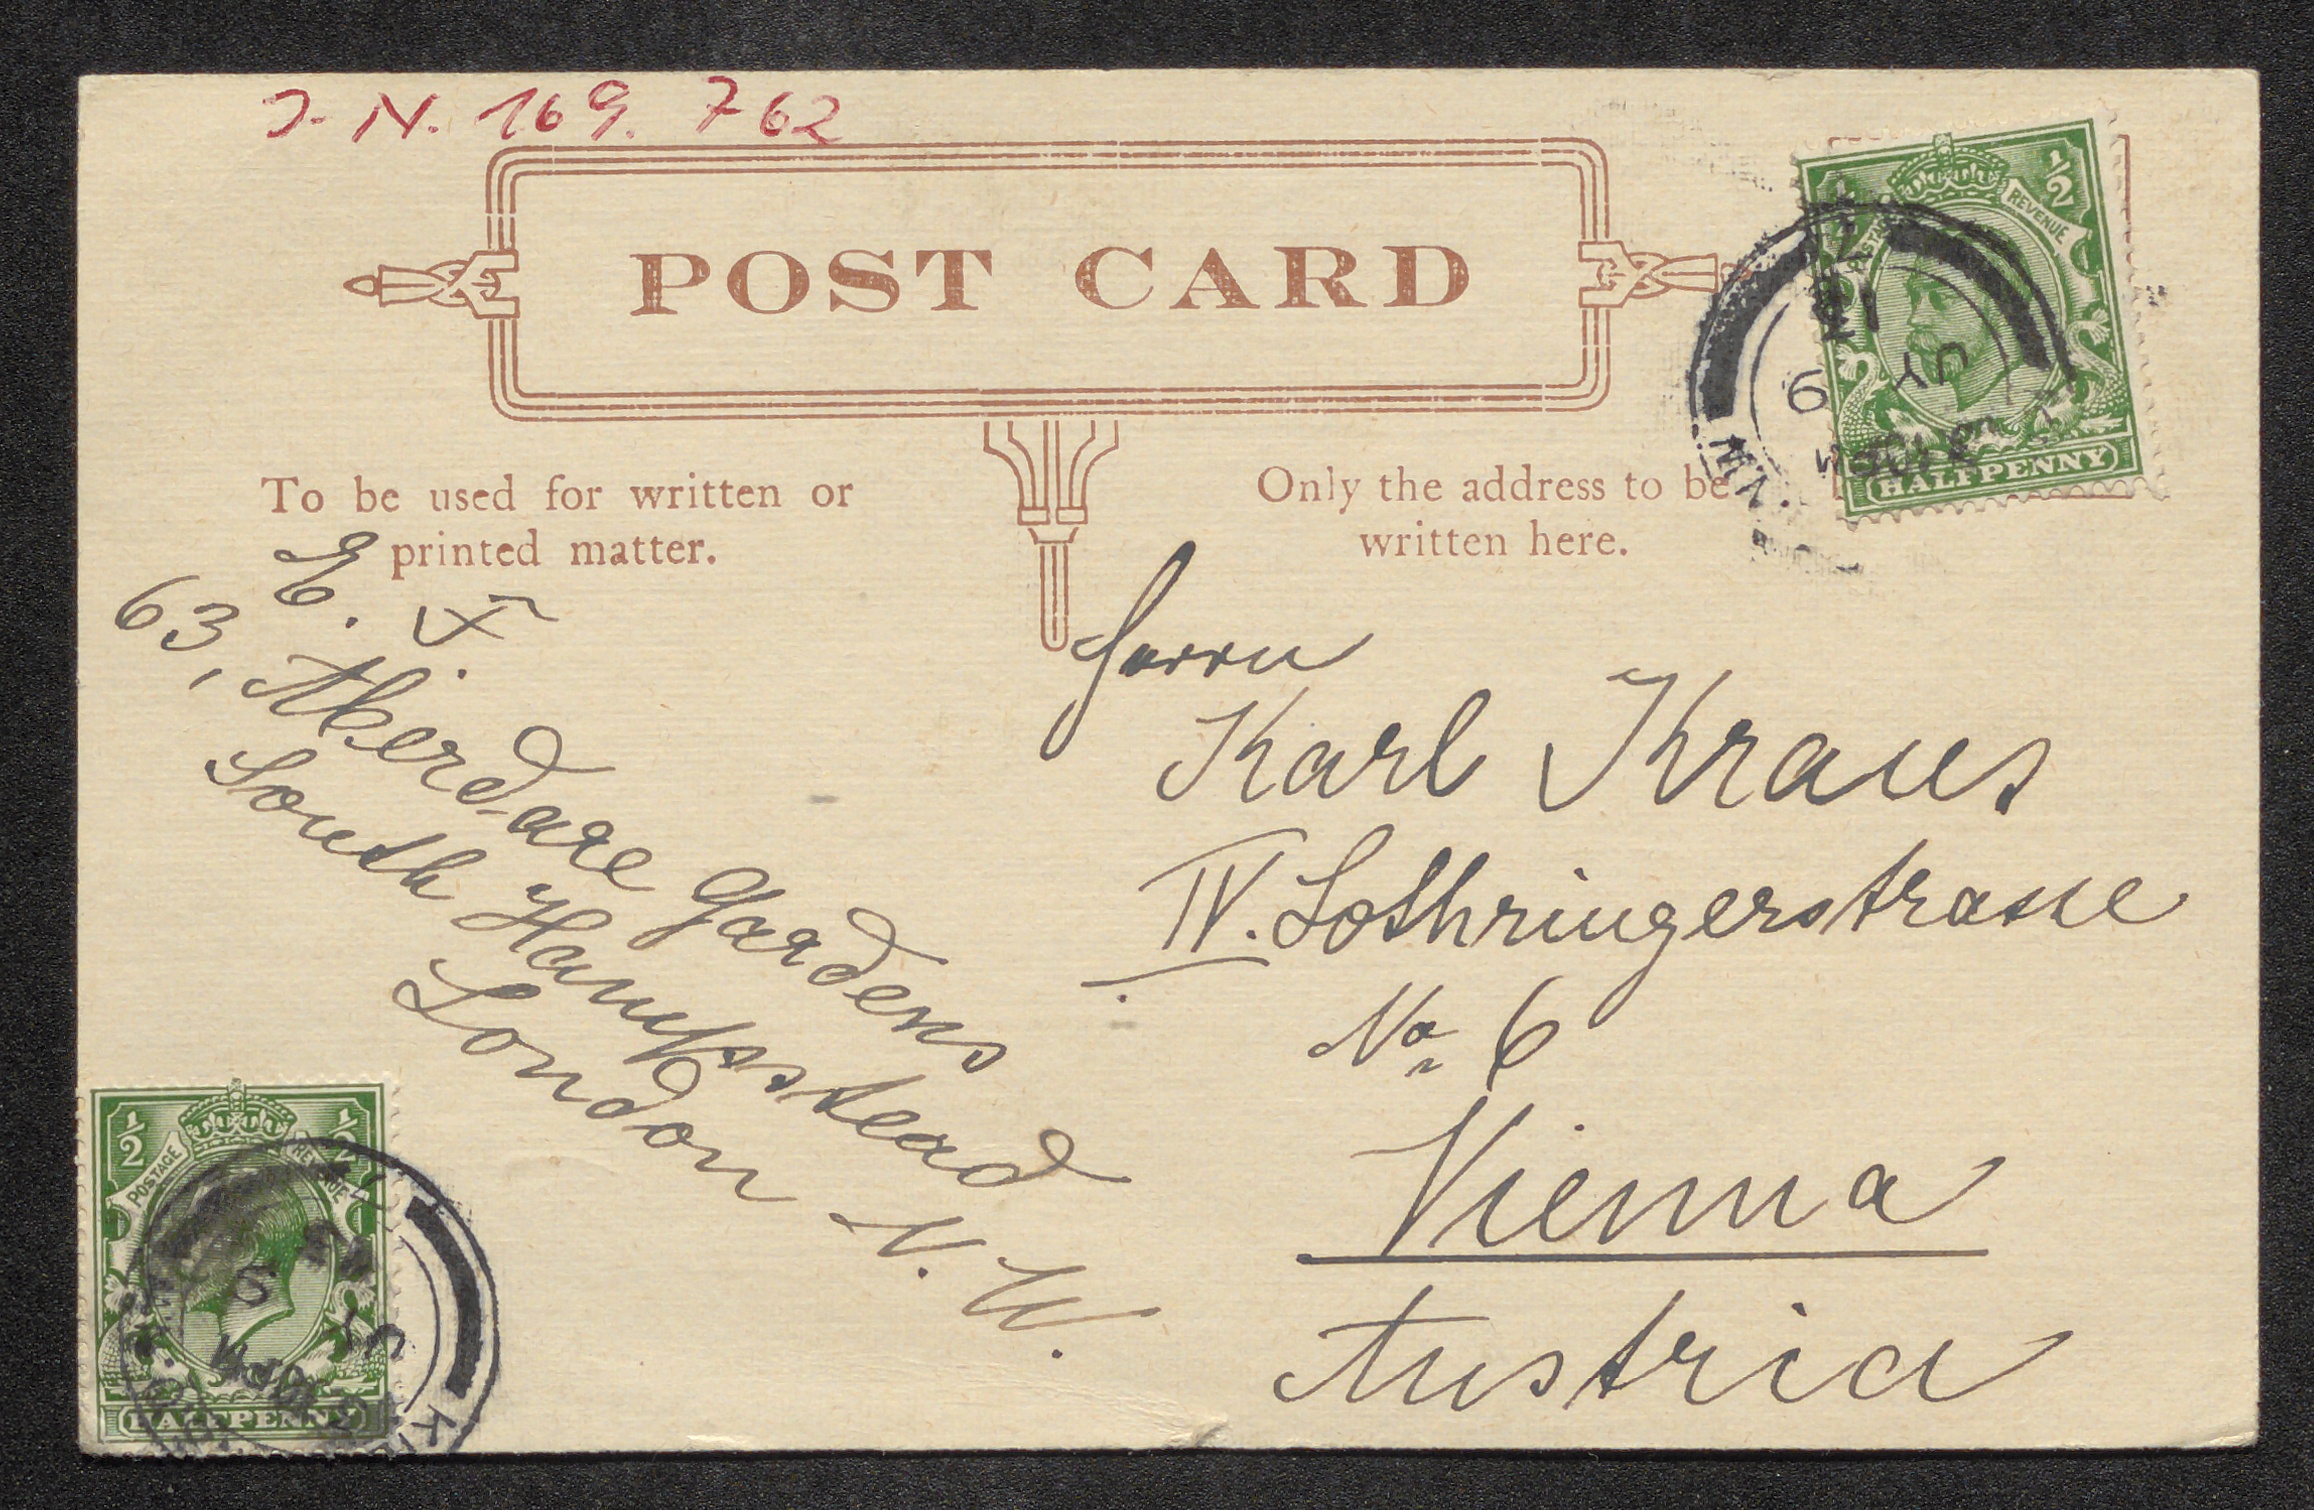 J. N. 169. 762
POST CARD
To be used for written or
printed matter.
Only the address to be
written here.
E. F.
63, Aberdare Gardens
South Hampstead
London N. W.
Herrn
Karl Kraus
IV. Lothringerstrasse
No 6
Vienna
Austria
½ ½
POSTAGE REVENUE
HALFPENNY
½
REVENUE
HALFPENNY
JY 9
JY 9
12
N.W.